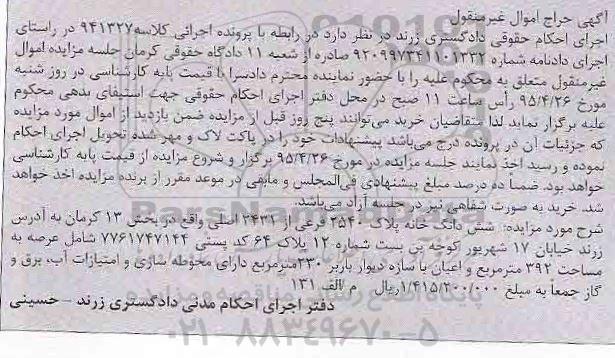 آگهی حراج اموال غیرمنقول
اجرای احکام حقوقی دادگستری زرند در نظر دارد در رابطه با پرونده اجرائی کلاسه۹۴۱۳۲۷ در راستای
اجرای دادنامه شماره ۹۲۰۹۹۷۳۴۱۱۰۱۳۳۲ صادره از شعبه ۱۱ دادگاه حقوقی کرمان جلسه مزایده اموال
غیرمنقول متعلق به محکوم علیه را با حضور نماینده محترم دادسرا با قیمت پایه کارشناسی در روز شنبه
مورخ ۹۵/۴/۲۶ رأس ساعت ۱۱ صبح در محل دفتر اجرای احکام حقوقی جهت استیفای بدهی محکوم
علیه برگزار نماید لذا متقاضیان خرید می‌توانند پنج روز قبل از مزایده ضمن بازدید از اموال مورد مزایده
که جزئیات آن در پرونده درج می‌باشد پیشنهادات خود را در پاکت لاک و مهر شده تحویل اجرای احکام
نموده و رسید اخذ نمایند جلسه مزایده در مورخ ۹۵/۴/۲۶ برگزار و شروع مزایده از قیمت پایه کارشناسی
خواهد بود. ضمناً ده درصد مبلغ پیشنهادی فی‌المجلس و مابقی در موعد مقرر از برنده مزایده اخذ خواهد
شد. خرید به صورت شفاهی نیز در جلسه آزاد می‌باشد.
شرح مورد مزایده: شش دانگ خانه پلاک ۲۵۴۰ فرعی از ۲۴۳۱ اصلی واقع در بخش ۱۳ کرمان به آدرس
زرند خیابان ۱۷ شهریور کوچه بن بست شماره ۱۲ پلاک ۶۴ کد پستی ۷۷۶۱۷۴۷۱۴۴ شامل عرصه به
مساحت ۳۹۲ مترمربع و اعیان با سازه دیوار باربر ۲۳۰مترمربع دارای محوطه سازی و امتیازات آب، برق و
گاز جمعاً به مبلغ ۱/۴۱۵/۲۰۰/۰۰۰ریال م/الف ۱۳۱
دفتر اجرای احکام مدنی دادگستری زرند – حسینی
ParsNamadData
پایگاه اطلاع رسانی مناقصه و مزایده
۰۲۱-۸۸۳۴۹۶۷۰-۵